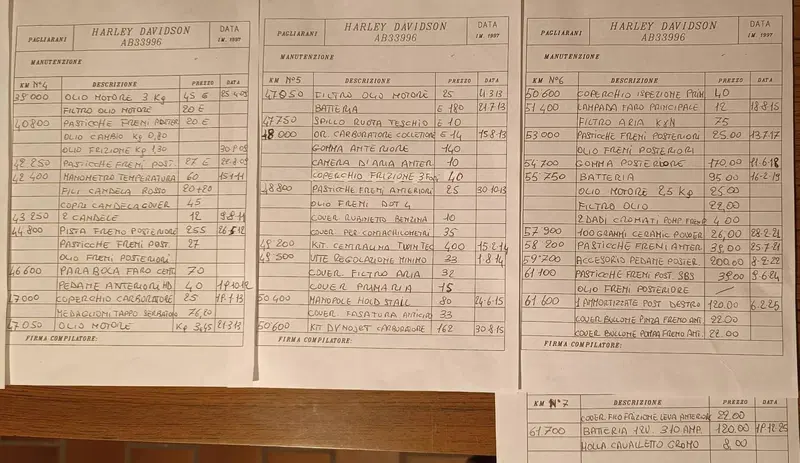 PAGLIARANI HARLEY DAVIDSON AB33996 DATA IM. 1997
MANUTENZIONE
KM N°4 DESCRIZIONE PREZZO DATA
39000 OLIO MOTORE 3 Kg 45 E 25.4.09
FILTRO OLIO MOTORE 20 E
40800 PASTICCHE FRENI POSTER 20 E
OLIO CAMBIO Kg 0,80
OLIO FRIZIONE Kg 1,30
42250 PASTICCHE FRENI POST. 27 E
42400 MANOMETRO TEMPERATURA 60 15.1.11
FILI CANDELA ROSSO 20+20
COPRI CANDELA COVER 45
43250 2 CANDELE 12 9.8.11
44800 PISTA FRENO POSTERIORE 255 26.5.12
PASTICCHE FRENI POST. 27
OLIO FRENI POSTERIORI
46600 PARABOLA FARO CENT. 70
PEDANE ANTERIORI HD 40 19.10.12
47000 COPERCHIO CARBURATORE 25 19.1.13
MEDAGLIONI TAPPO SERBATOIO 76,20
47050 OLIO MOTORE Kg 3,45 21.3.13
FIRMA COMPILATORE:
PAGLIARANI HARLEY DAVIDSON AB33996 DATA IM. 1997
MANUTENZIONE
KM N°5 DESCRIZIONE PREZZO DATA
47050 FILTRO OLIO MOTORE 25 21.3.13
BATTERIA E 180 21.7.13
47750 SPILLO RUOTA TESCHIO E 10
48000 OR. CARBURATORE COLLETTORE E 14 15.8.13
GOMMA ANTERIORE 140
CAMERA D'ARIA ANTER 10
COPERCHIO FRIZIONE 3 FORI 40
48800 PASTICCHE FRENI ANTERIORI 25 30.10.13
OLIO FRENI DOT 4
COVER RUBINETTO BENZINA 10
COVER PER CONTACHILOMETRI 35
49200 KIT. CENTRALINA TWIN TEC 400 15.2.14
49500 VITE REGOLAZIONE MINIMO 33 1.8.14
COVER FILTRO ARIA 32
COVER PRIMARIA 15
50400 MANOPOLE HOLD STALL 80 24.6.15
COVER FASATURA ANTICIPO 33
50600 KIT DYNOJET CARBURATORE 162 30.8.15
FIRMA COMPILATORE:
PAGLIARANI HARLEY DAVIDSON AB33996 DATA IM. 1997
MANUTENZIONE
KM N°6 DESCRIZIONE PREZZO DATA
50600 COPERCHIO ISPEZIONE PRIM. 40
51400 LAMPADA FARO PRINCIPALE 12 18.8.15
FILTRO ARIA K&N 75
53000 PASTICCHE FRENI POSTERIORI 25.00 13.7.17
OLIO FRENI POSTERIORI
54700 GOMMA POSTERIORE 170.00 11.6.18
55750 BATTERIA 95.00 16.2.19
OLIO MOTORE 2,5 Kg 25.00
FILTRO OLIO 22,00
2 DADI CROMATI POMP FRENO 4.00
57900 100 GRAMMI CERAMIC POWER 26,00 28.2.21
58200 PASTICCHE FRENI ANTER 39.00 25.7.21
59700 ACCESORIO PEDANE POSTER 200.00 8.2.22
61100 PASTICCHE FRENI POST. SBS 39.00 9.6.24
OLIO FRENI POSTERIORE /
61600 1 AMMORTIZZATE POST DESTRO 120.00 6.2.25
COVER BULLONE PINZA FRENO ANT. 22.00
COVER BULLONE POMPA FRENO ANT. 22.00
FIRMA COMPILATORE:
KM N°7 DESCRIZIONE PREZZO DATA
COVER FILO FRIZIONE LEVA ANTERIORE 22.00
61700 BATTERIA 12V. 310 AMP. 120.00 19.12.25
MOLLA CAVALLETTO CROMO 8,00